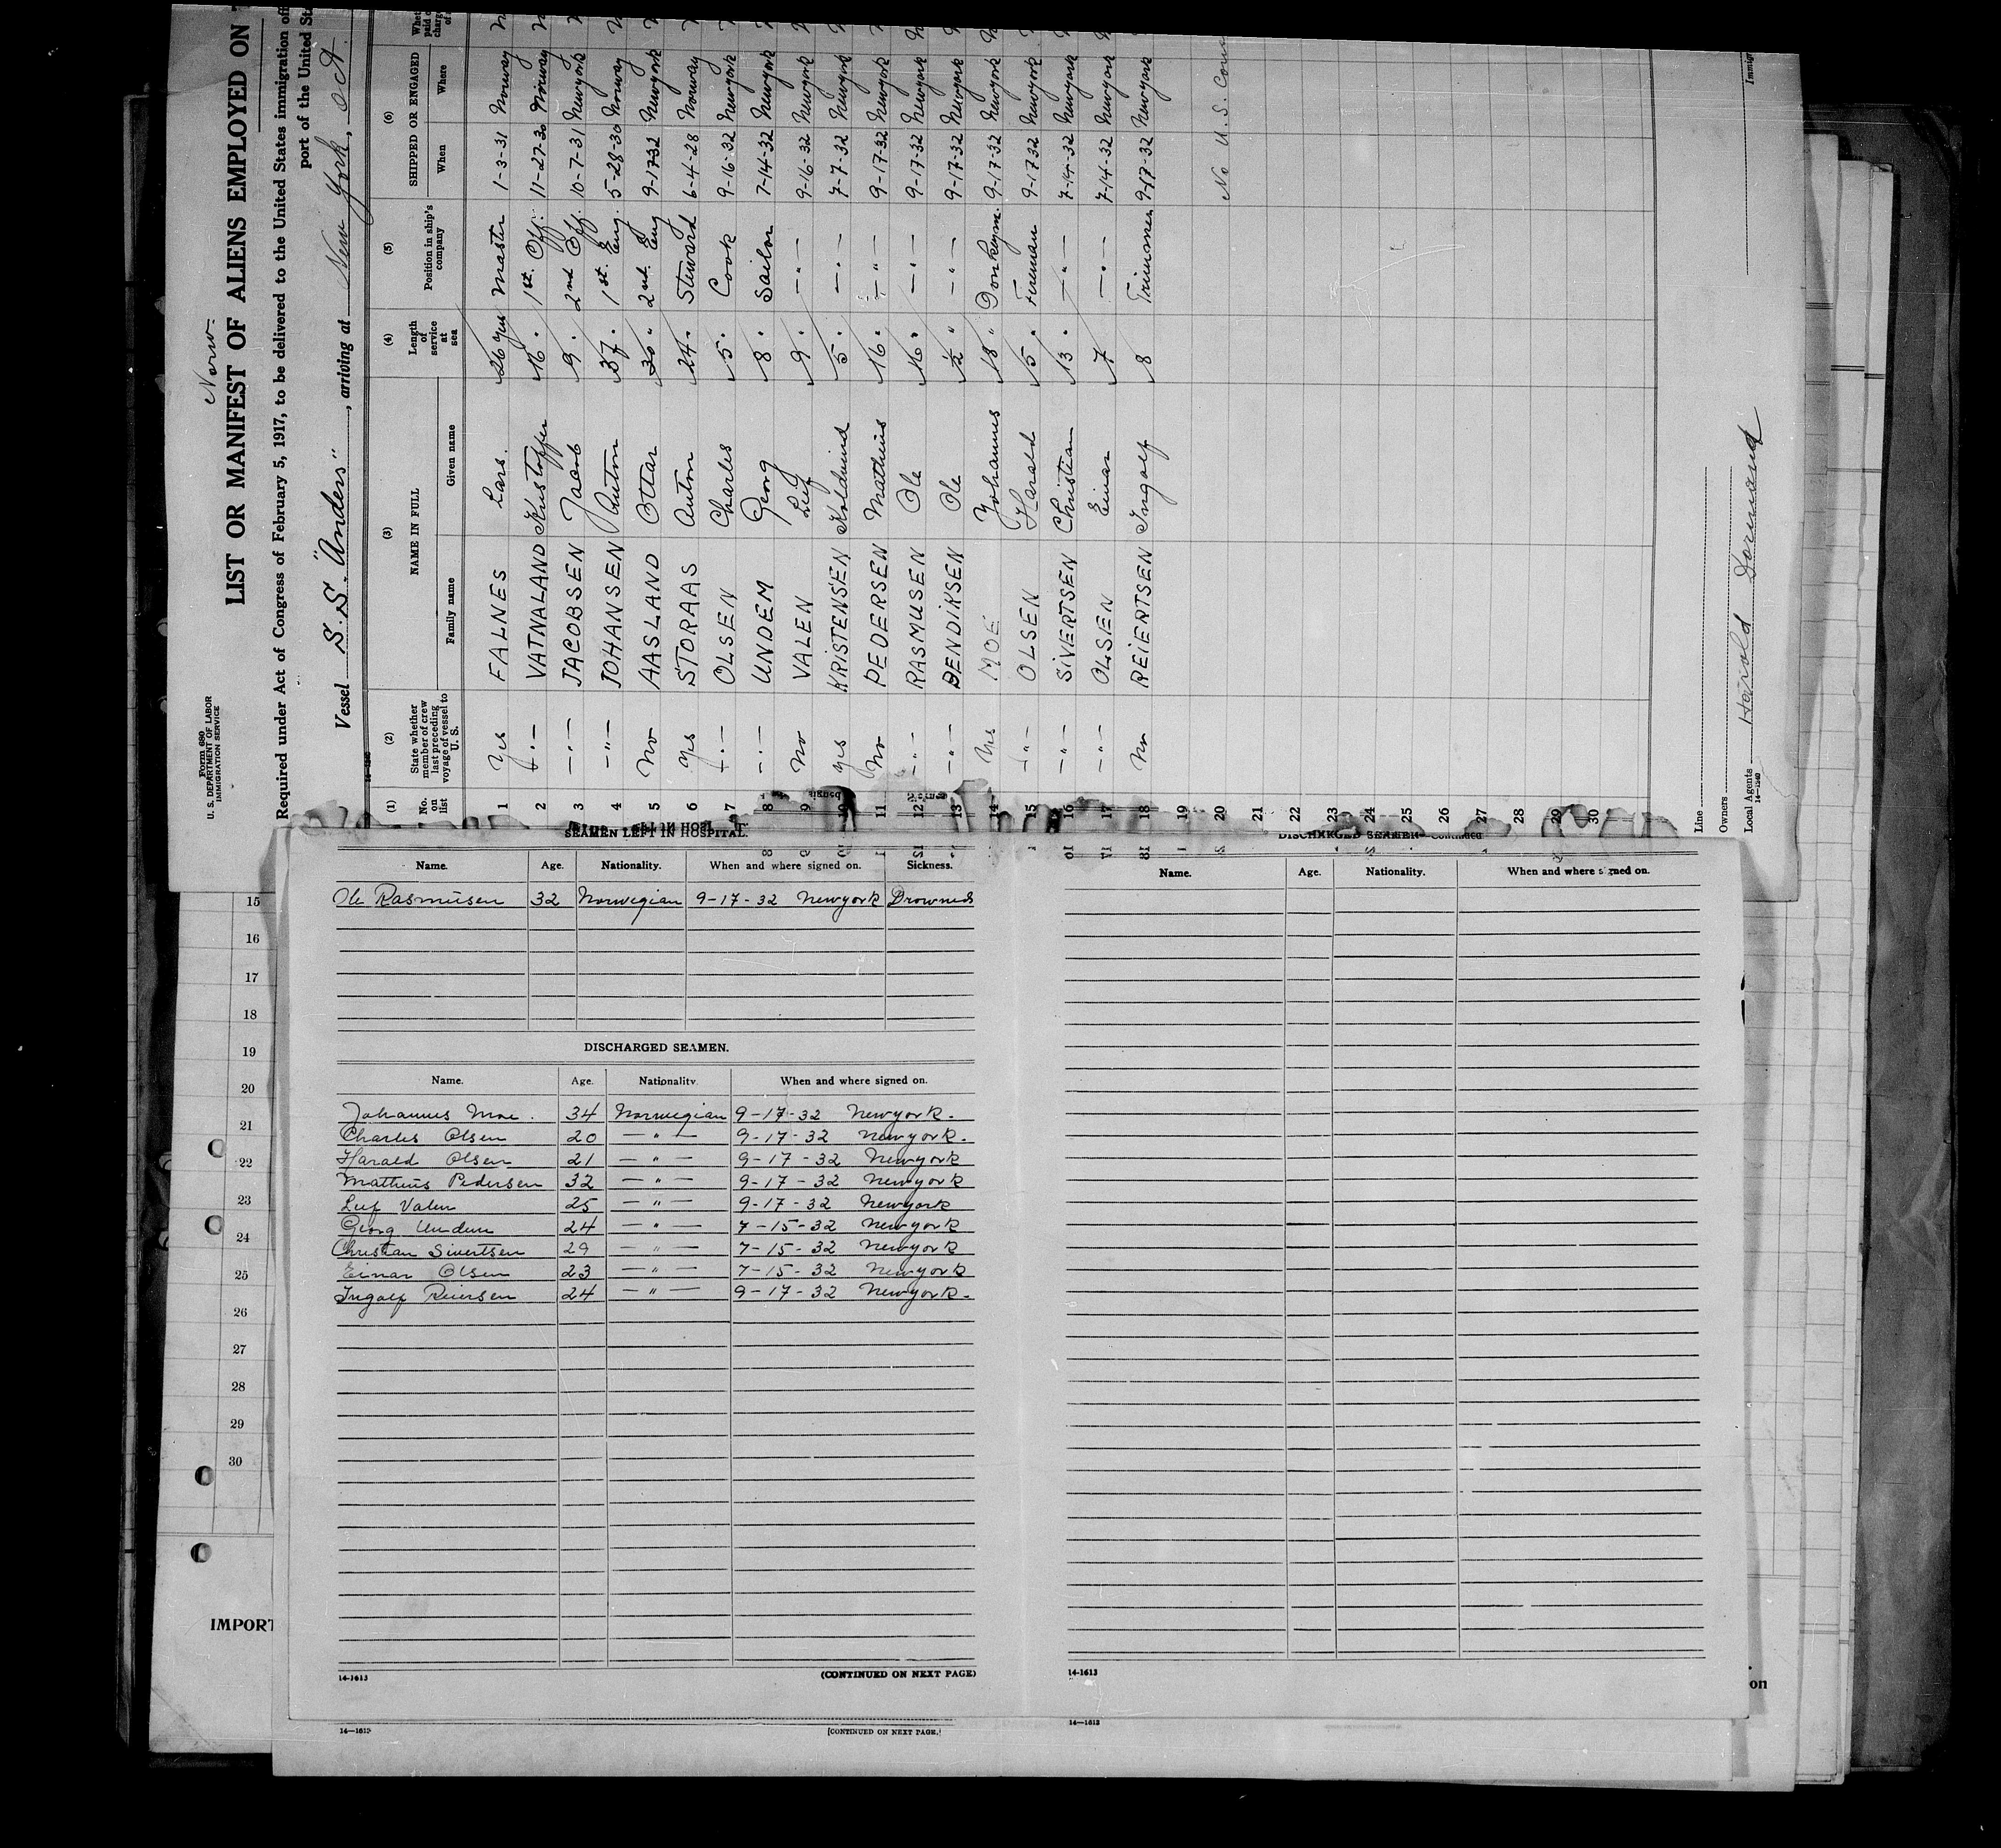 Form 680
U. S. DEPARTMENT OF LABOR
IMMIGRATION SERVICE
Norw.
LIST OR MANIFEST OF ALIENS EMPLOYED ON
Required under Act of Congress of February 5, 1917, to be delivered to the United States immigration
port of the United
Vessel S. S. "Anders", arriving at New York, Oct.
(1) (2) (3) (4) (5) (6)
No. on list
State whether member of crew last preceding voyage of vessel to U. S.
NAME IN FULL
Family name Given name
Length of service at sea
Position in ship's company
SHIPPED OR ENGAGED
When Where
1 Yes FALNES Lars. 26 yrs Master 1-3-31 Norway
2 —"— VATNALAND Kristoffer 16 " 1st. Off. 11-27-30 Norway
3 —"— JACOBSEN Jacob 9 " 2nd Off. 10-7-31 Newyork
4 —"— JOHANSEN Anton 37 " 1st. Eng. 5-28-30 Norway
5 No AASLAND Ottar 30 " 2nd. Eng 9-17-32 Newyork
6 Yes STORAAS Anton 24 " Steward 6-4-28 Norway
7 —"— OLSEN Charles 5 " Cook 9-16-32 Newyork
8 —"— UNDEM Georg 8 " Sailor 7-14-32 Newyork
9 No VALEN Leif 9 " —"— 9-16-32 Newyork
10 yes KRISTENSEN 5 " —"— 7-7-32 Newyork
11 No PEDERSEN Mathius 16 " —"— 9-17-32 Newyork
12 —"— RASMUSEN Ole 16 " —"— 9-17-32 Newyork
13 —"— BENDIKSEN Ole ½ " —"— 9-17-32 Newyork
14 Yes MOE Johannes 18 " Donkeym. 9-17-32 Newyork
15 —"— OLSEN Harald 5 " Fireman 9-17-32 Newyork
16 —"— SIVERTSEN Christian 13 " —"— 7-14-32 Newyork
17 —"— OLSEN Einar 7 —"— 7-14-32 Newyork
18 No REIERTSEN Ingolf 8 Trimmer 9-17-32 Newyork
19
20 No U. S. Cons
21
22
23
24
25
26
27
28
29
30
Line
Owners
Local Agents Harold Dormand
14-1240
Immig
SEAMEN LEFT IN HOSPITAL.
Name. Age. Nationality. When and where signed on. Sickness.
Ole Rasmusen 32 Norwegian 9-17-32 Newyork Drowned
DISCHARGED SEAMEN.
Name. Age. Nationality. When and where signed on.
Johannes Moe. 34 Norwegian 9-17-32 Newyork.
Charles Olsen 20 —"— 9-17-32 Newyork.
Harald Olsen 21 —"— 9-17-32 Newyork
Mathius Pedersen 32 —"— 9-17-32 Newyork
Leif Valen 25 —"— 9-17-32 Newyork
Georg Undem 24 —"— 7-15-32 Newyork
Christian Sivertsen 29 —"— 7-15-32 Newyork
Einar Olsen 23 —"— 7-15-32 Newyork
Ingolf Reiersen 24 —"— 9-17-32 Newyork.
14-1613 (CONTINUED ON NEXT PAGE)
DISCHARGED SEAMEN—Continued
Name. Age. Nationality. When and where signed on.
14-1613
15
16
17
18
19
20
21
22
23
24
25
26
27
28
29
30
IMPORT
on
14—1613 [CONTINUED ON NEXT PAGE.]
14—1613